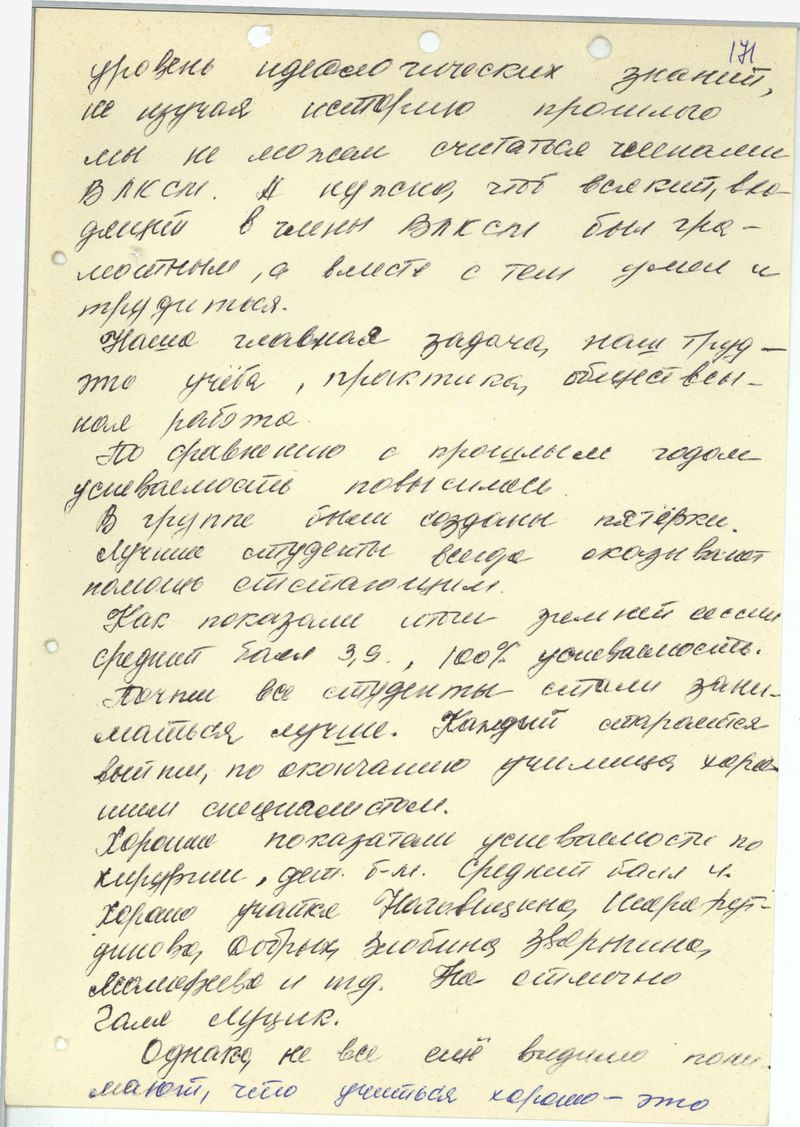 171
уровень идеологических знаний,
не изучая историю прошлого
мы не можем считаться членами
ВЛКСМ. А нужно, чтоб всякий, вхо-
дящий в члены ВЛКСМ был гра-
мотным, а вместе с тем умел и
трудиться.
Наша главная задача, наш труд -
это учёба, практика, обществен-
ная работа.
По сравнению с прошлым годом
успеваемость повысилась.
В группе были созданы пятёрки.
Лучшие студенты всегда оказывают
помощь отстающим.
Как показали итоги зимней сессии
средний балл 3,9., 100% успеваемость.
Почти все студенты стали зани-
маться лучше. Каждый старается
выйти, по окончанию училища, хоро-
шим специалистом.
Хорошие показатели успеваемости по
хирургии, дет. б-м. Средний балл 4.
Хорошо учатся Наговицына,
Добрых, Злобина, Зварыгина,
и т.д. На отлично
Галя Луцик.
Однако, не все ещё видимо пони-
мают, что учиться хорошо - это